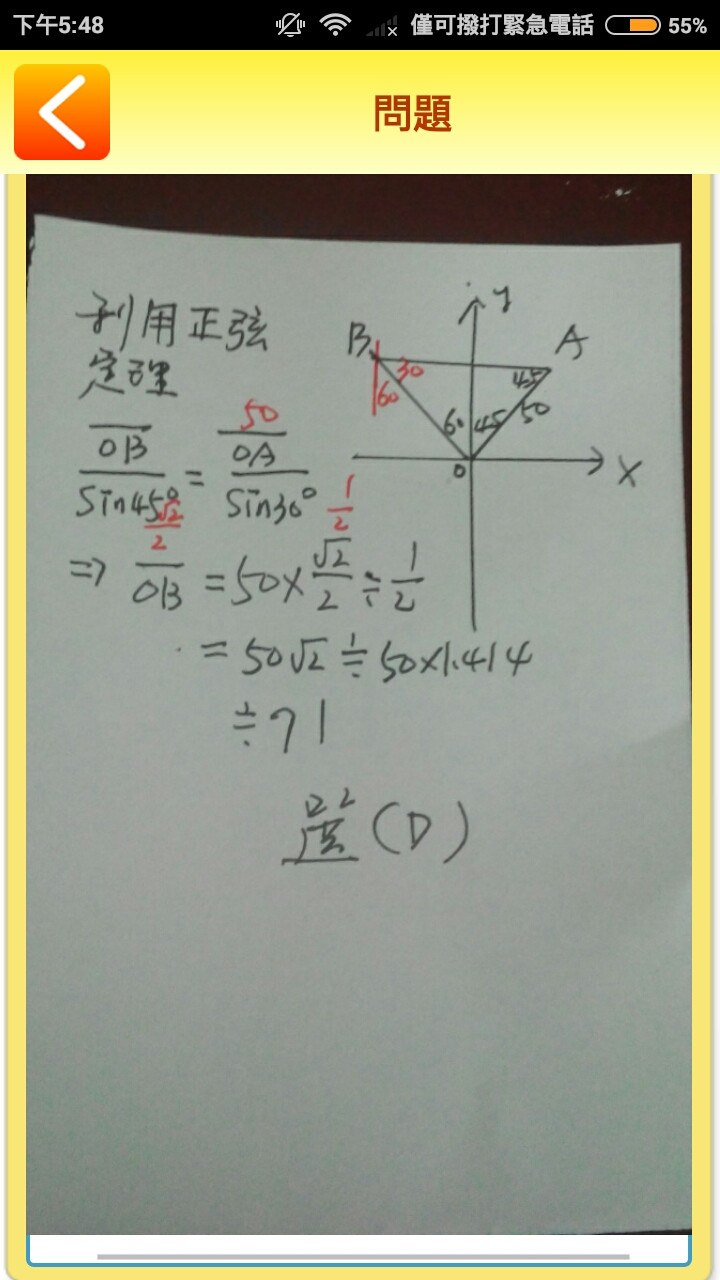 下午5:48 僅可撥打緊急電話 55%
問題
利用正弦
定理
OB/Sin45° = OA/Sin30°
√2/2 50 1/2
⇒ OB = 50×√2/2÷1/2
= 50√2 ≒ 50×1.414
≒ 71
選(D)
y
B A
30 45
60 60 45 50
O X